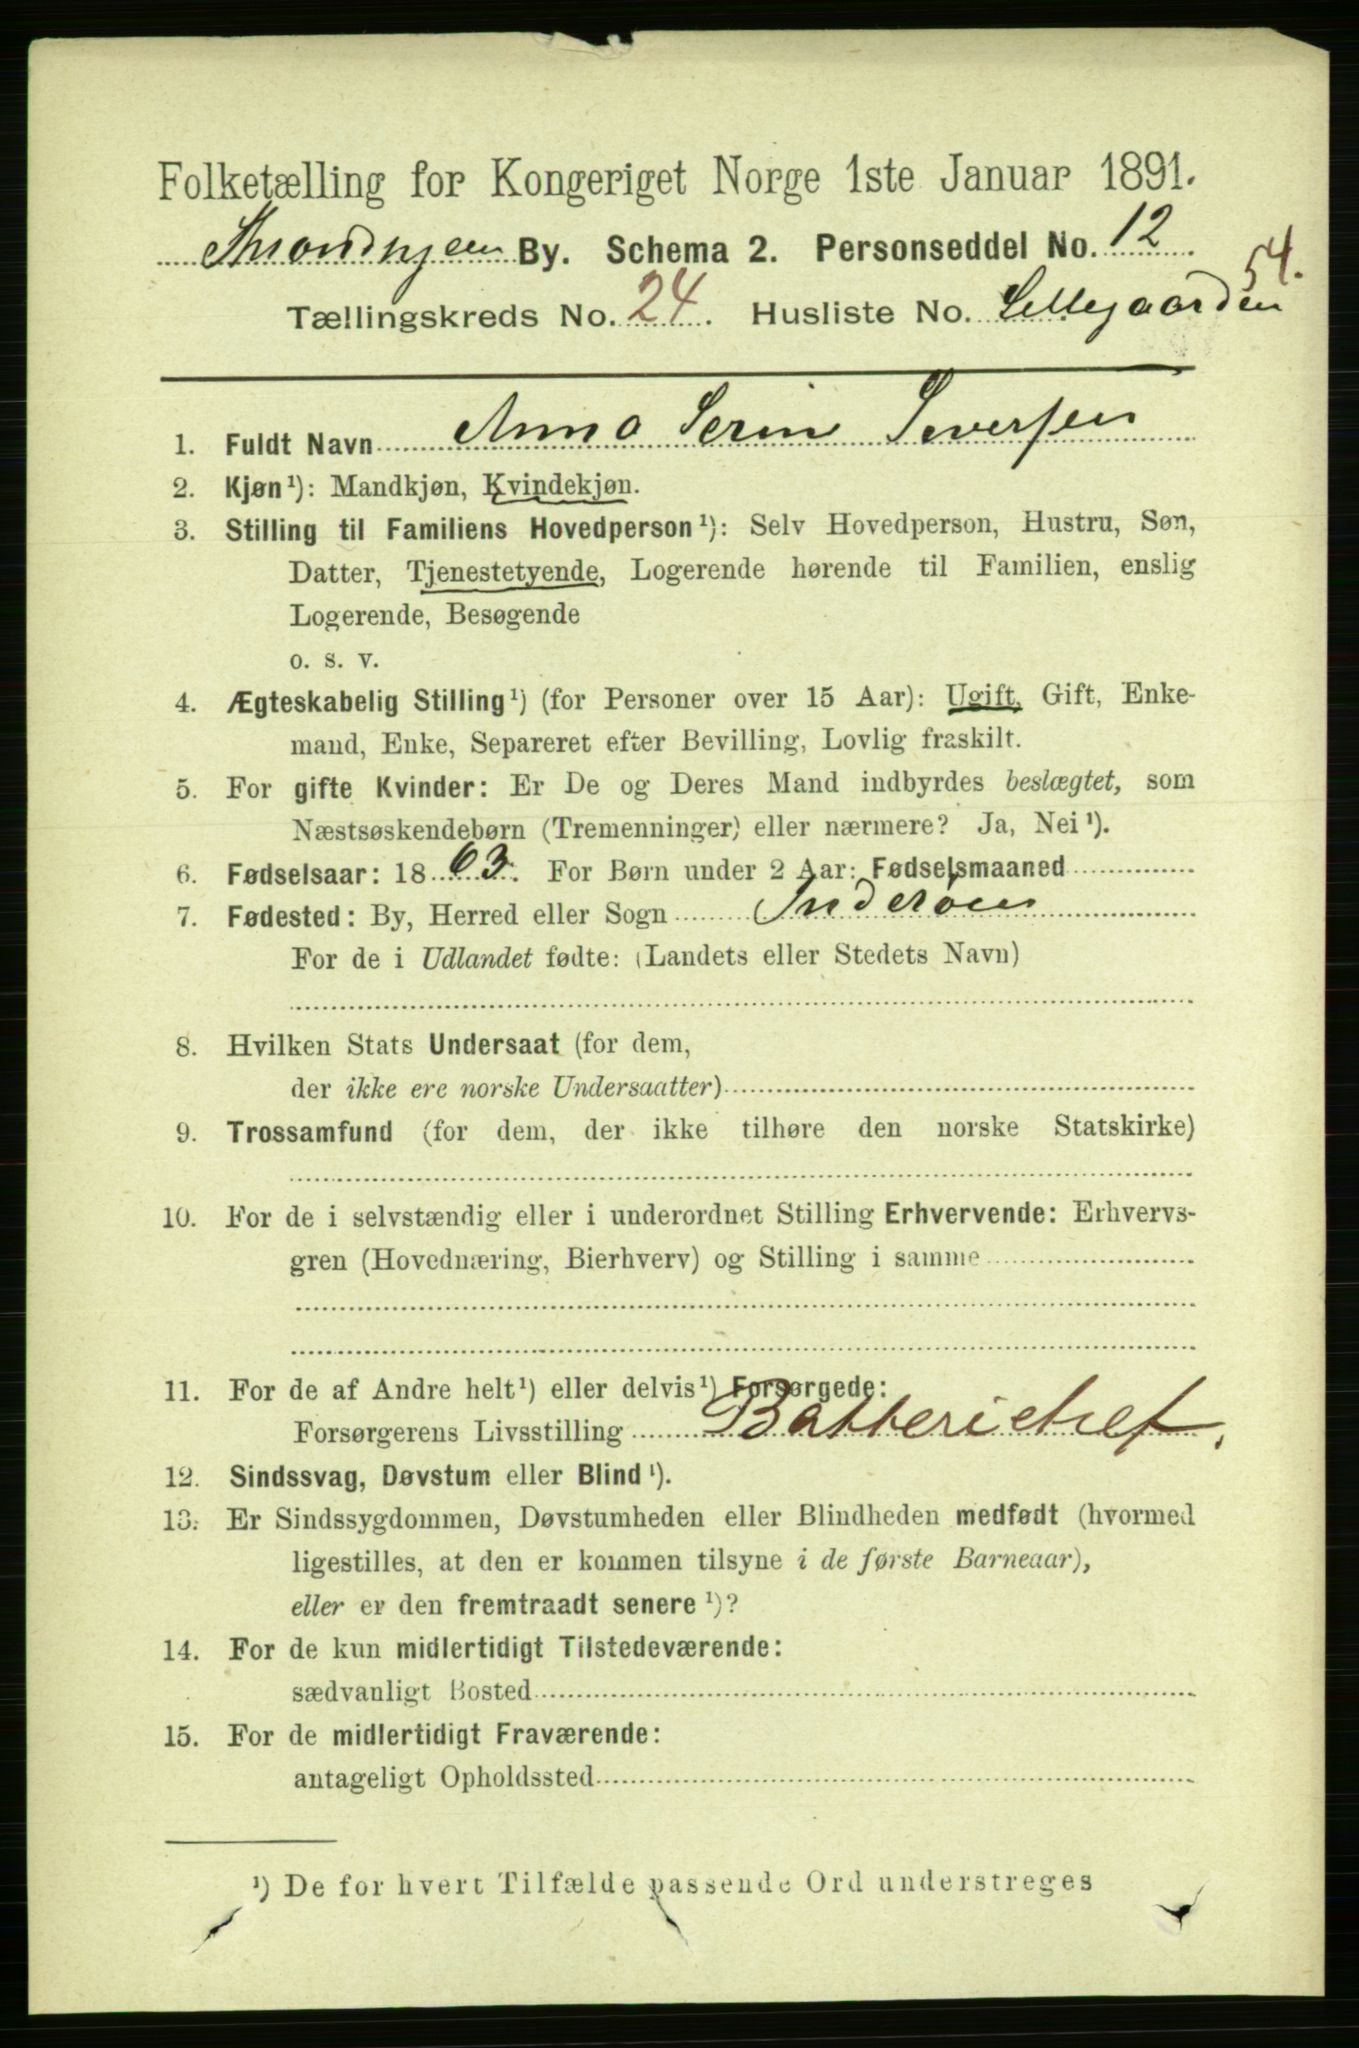 Folketælling for Kongeriget Norge 1ste Januar 1891.
Throndhjem By. Schema 2. Personseddel No. 12
54.
Tællingskreds No. 24. Husliste No. Lillegaarden
1. Fuldt Navn Anna Serine Seversen
2. Kjøn¹): Mandkjøn, Kvindekjøn.
3. Stilling til Familiens Hovedperson¹): Selv Hovedperson, Hustru, Søn,
Datter, Tjenestetyende, Logerende hørende til Familien, enslig
Logerende, Besøgende
o. s. v.
4. Ægteskabelig Stilling¹) (for Personer over 15 Aar): Ugift, Gift, Enke-
mand, Enke, Separeret efter Bevilling, Lovlig fraskilt.
5. For gifte Kvinder: Er De og Deres Mand indbyrdes beslægtet, som
Næstsøskendebørn (Tremenninger) eller nærmere? Ja, Nei¹).
6. Fødselsaar: 1863. For Børn under 2 Aar: Fødselsmaaned
7. Fødested: By, Herred eller Sogn Inderöen
For de i Udlandet fødte: (Landets eller Stedets Navn)
8. Hvilken Stats Undersaat (for dem,
der ikke ere norske Undersaatter)
9. Trossamfund (for dem, der ikke tilhøre den norske Statskirke)
10. For de i selvstændig eller i underordnet Stilling Erhvervende: Erhvervs-
gren (Hovednæring, Bierhverv) og Stilling i samme
11. For de af Andre helt¹) eller delvis¹) Forsørgede:
Forsørgerens Livsstilling Batterichef.
12. Sindssvag, Døvstum eller Blind¹).
13. Er Sindssygdommen, Døvstumheden eller Blindheden medfødt (hvormed
ligestilles, at den er kommen tilsyne i de første Barneaar),
eller er den fremtraadt senere¹)?
14. For de kun midlertidigt Tilstedeværende:
sædvanligt Bosted
15. For de midlertidigt Fraværende:
antageligt Opholdssted
¹) De for hvert Tilfælde passende Ord understreges